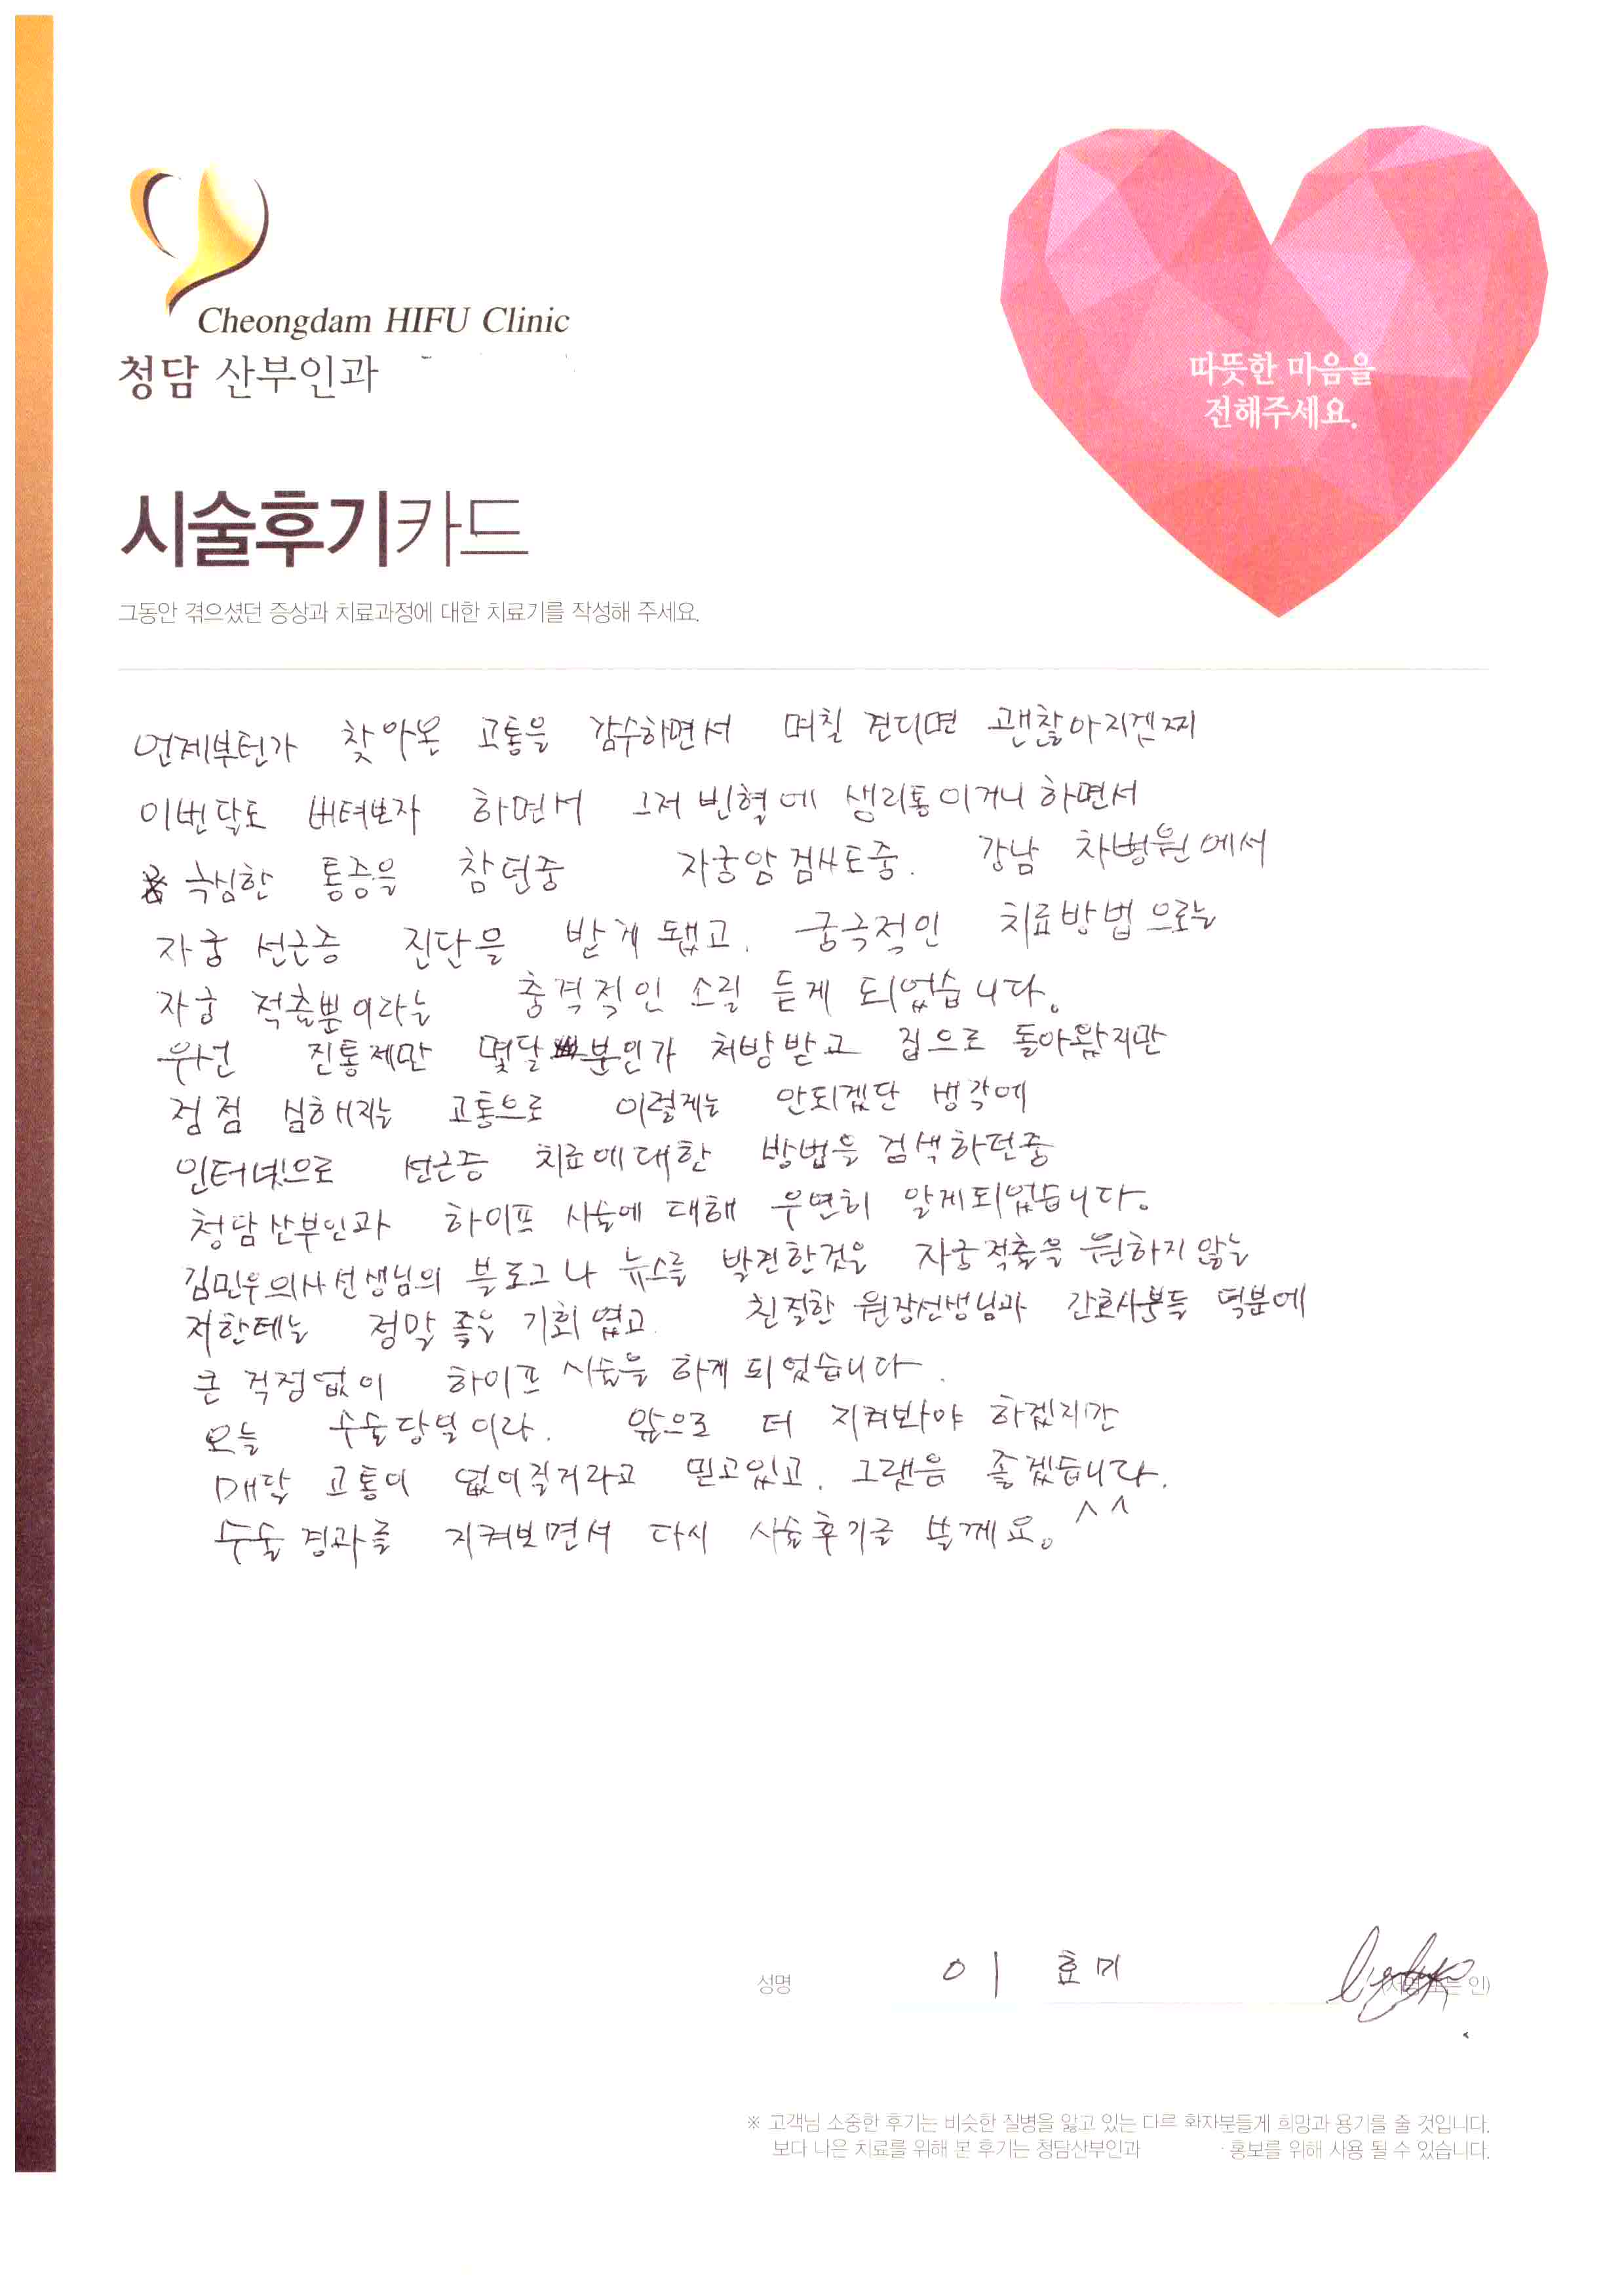 Cheongdam HIFU Clinic
청담 산부인과
따뜻한 마음을
전해주세요.
시술후기카드
그동안 겪으셨던 증상과 치료과정에 대한 치료기를 작성해 주세요.
언제부턴가 찾아온 고통을 감수하면서 며칠 견디면 괜찮아지겠찌
이번달도 버텨보자 하면서 그저 빈혈에 생리통이거니 하면서
극심한 통증을 참던중 자궁암검사도중. 강남 차병원에서
자궁 선근증 진단을 받게 됐고. 궁극적인 치료방법으로는
자궁 적출뿐이라는 충격적인 소릴 듣게 되었습니다.
우선 진통제만 몇달분인가 처방받고 집으로 돌아왔지만
점점 심해지는 고통으로 이렇게는 안되겠단 생각에
인터넷으로 선근증 치료에대한 방법을 검색하던중
청담산부인과 하이프 시술에 대해 우연히 알게되었습니다.
김민우의사선생님의 블로그나 뉴스를 발견한것은 자궁적출을 원하지 않는
저한테는 정말 좋은 기회였고. 친절한 원장선생님과 간호사분들 덕분에
큰 걱정없이 하이프 시술을 하게 되었습니다.
오늘 수술당일이라. 앞으로 더 지켜봐야 하겠지만
매달 고통이 없어질거라고 믿고있고. 그랬음 좋겠습니다.
수술 경과를 지켜보면서 다시 시술후기를 쓸께요. ^^
성명 이 효미 인)
※ 고객님 소중한 후기는 비슷한 질병을 앓고 있는 다른 환자분들게 희망과 용기를 줄 것입니다.
보다 나은 치료를 위해 본 후기는 청담산부인과 홍보를 위해 사용 될 수 있습니다.